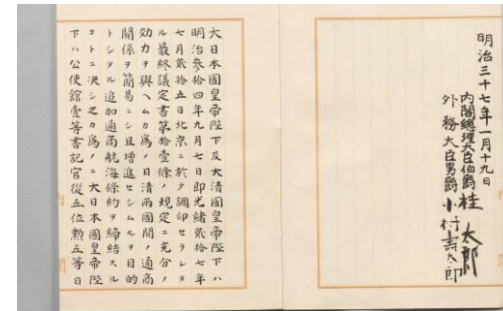 明治三十七年一月十九日
内閣總理大臣伯爵桂太郎
外務大臣男爵小村壽太郎
大日本國皇帝陛下及大清國皇帝陛下ハ
明治參拾四年九月七日即光緒貳拾七年
七月貳拾五日北京ニ於テ調印セラレタ
ル最終議定書第拾壹條ノ規定ニ充分ノ
効力ヲ與ヘムカ爲メ日清兩國間ノ通商
關係ヲ簡易ニシ且增進セシムルヲ目的
トシタル追加通商航海條約ヲ締結スル
コトニ決シ之カ爲メニ大日本國皇帝陛
下ハ公使館壹等書記官從五位勲五等日